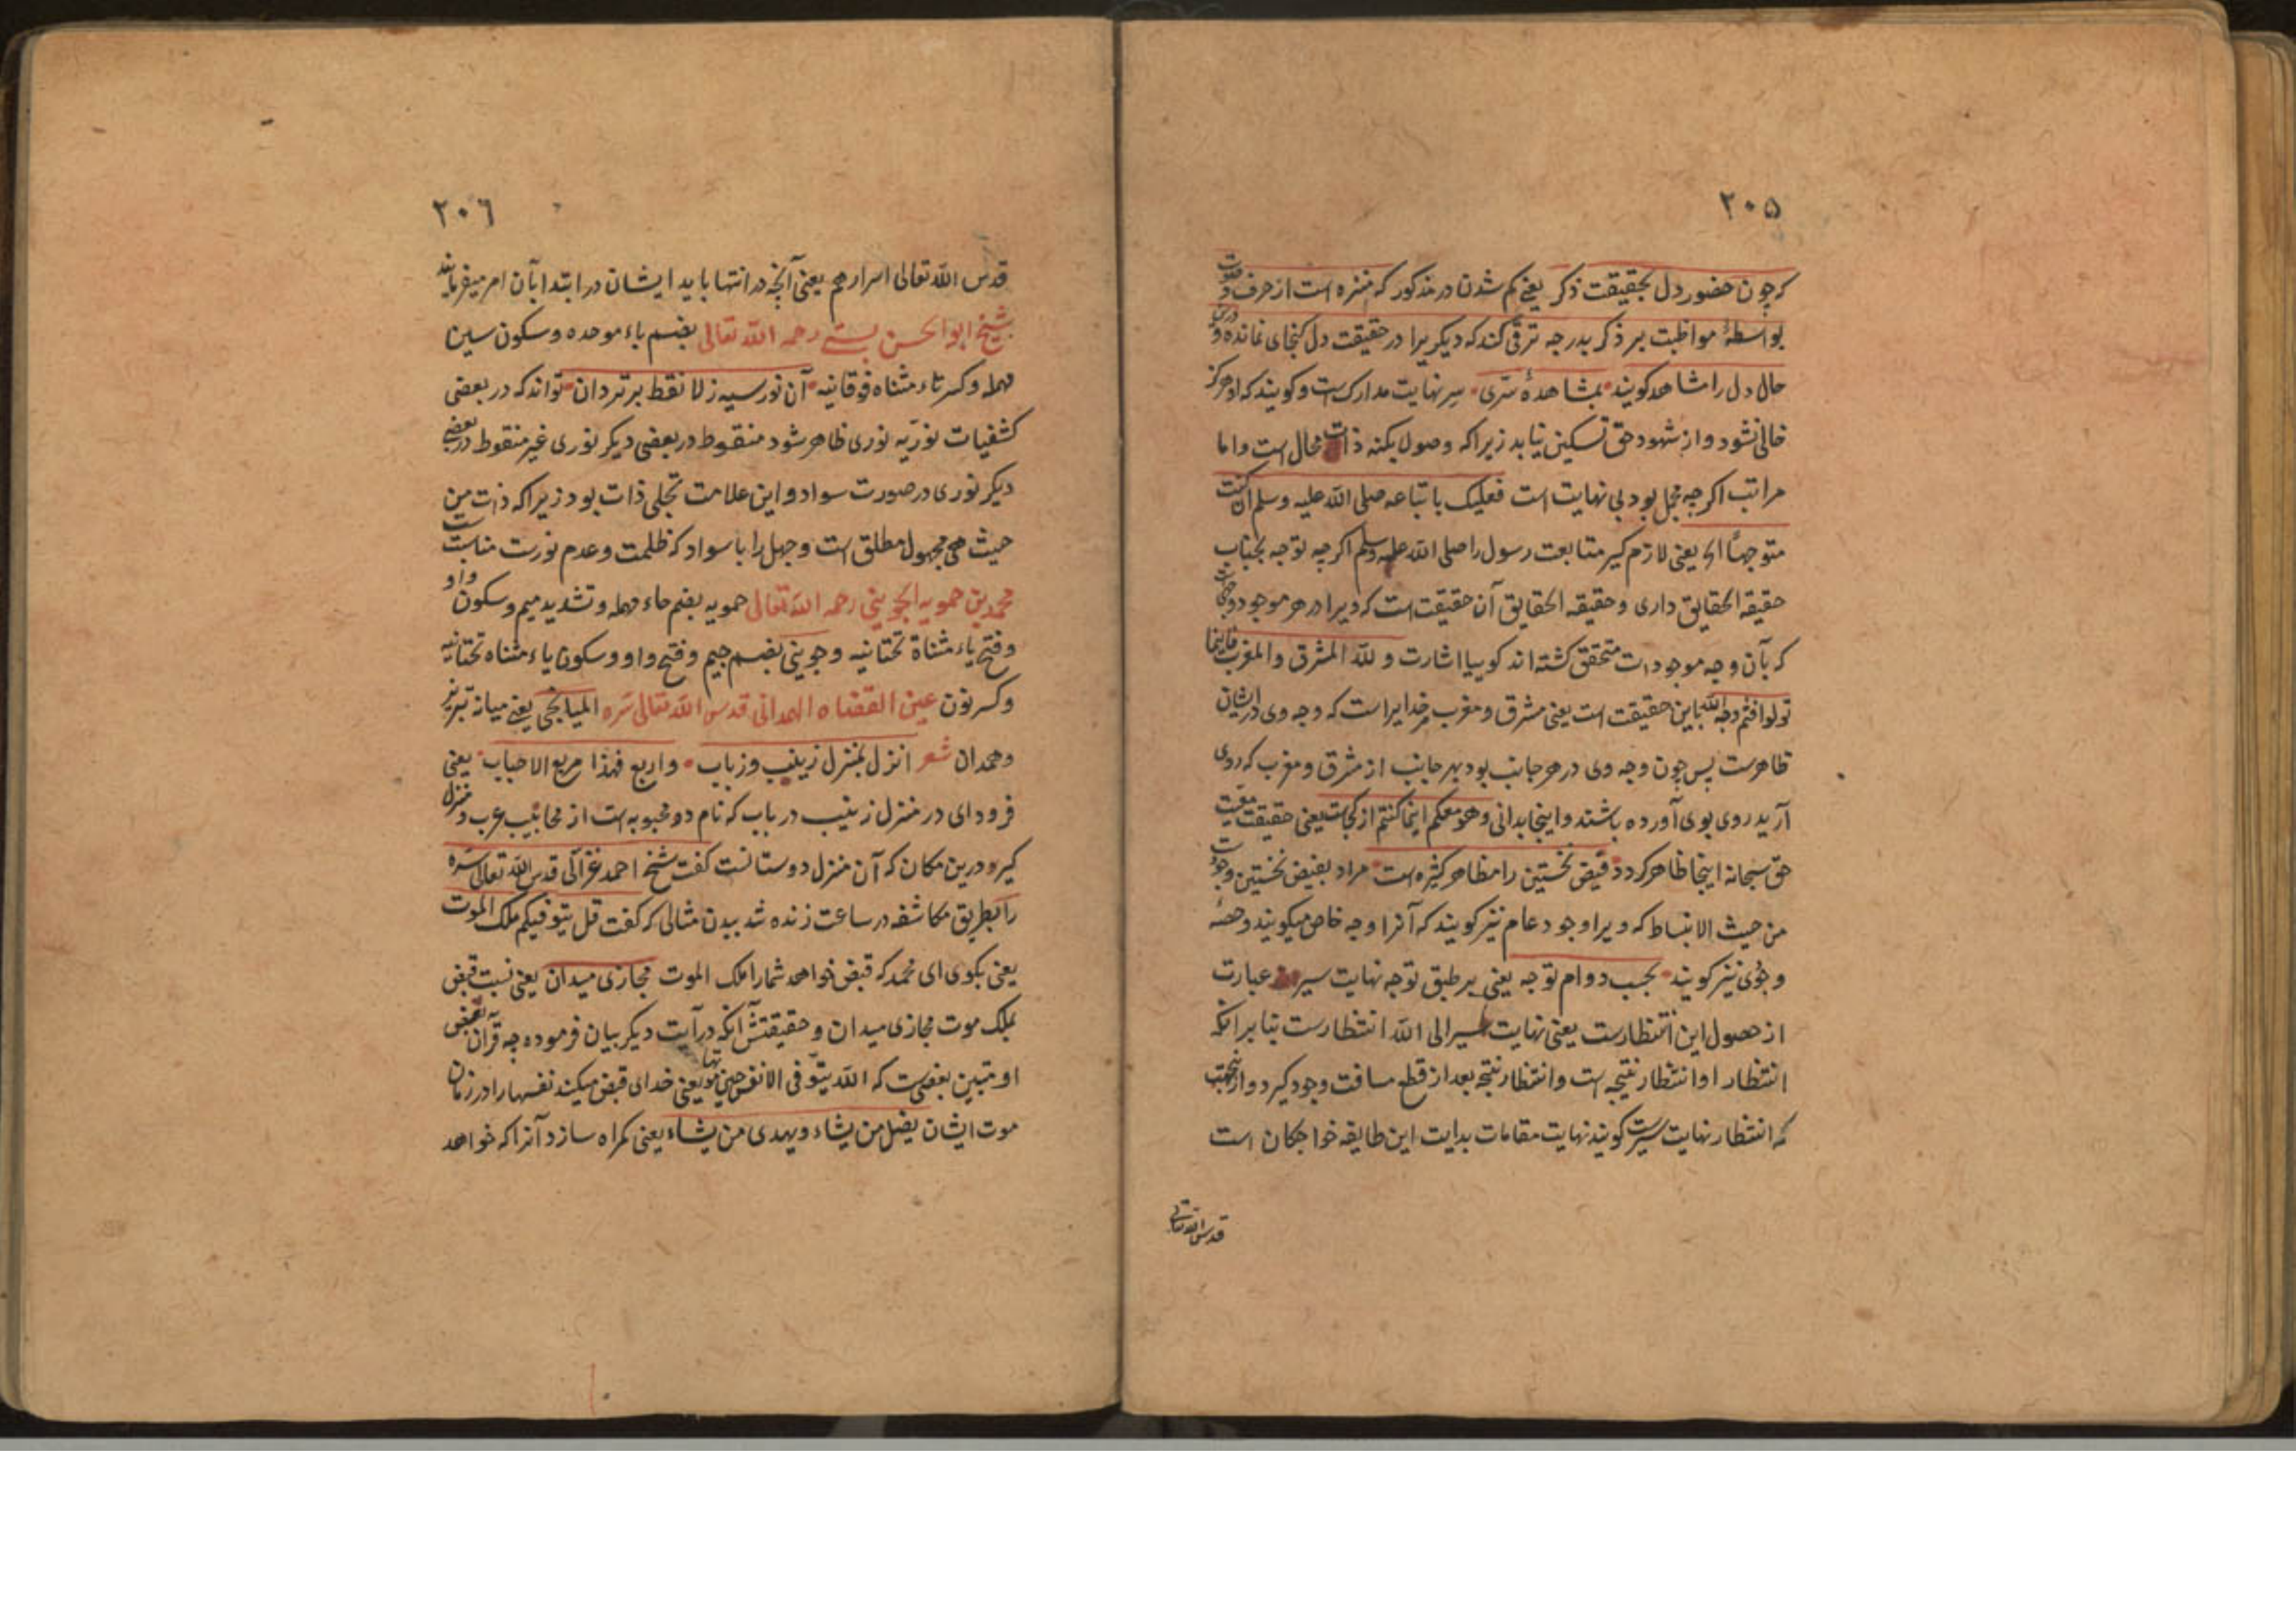 ۲۰۵
که چون حضور دل بحقیقت ذکر یعنی کم شدن در مذکور که منزه است از حرف و صوت
بواسطهٔ مواظبت بر ذکر بدرجه ترقی کند که دیگریرا در حقیقت دل کنجای نمانده و درین
حال دل را مشاهد کویند بمشاهدهٔ سری سیر نهایت مدارک است و کویند که او هرکز
خالی نشود و از شهود حق تسکین نیابد زیرا که وصول بکنه ذات محال است و اما
مراتب اکرچه مجمل بود بی نهایت است فعلیک باتباعه صلی الله علیه وسلم ان کنت
متوجها الخ یعنی لازم کیر متابعت رسول را صلی الله علیه وسلم اکرچه توجه بجناب
حقیقه الحقایق داری و حقیقه الحقایق آن حقیقت است که ویرا در هر موجود وجهی است
که بآن وجه موجودات متحقق کشته اند کوییا اشارت ولله المشرق والمغرب فاینما
تولوا فثم وجه الله باین حقیقت است یعنی مشرق و مغرب مر خدایراست که وجه وی در ایشان
ظاهرست پس چون وجه وی در هر جانب بود بهر جانب از مشرق و مغرب که روی
آرید روی بوی آورده باشند و اینجا بدانی وهو معکم اینما کنتم از کجاست یعنی حقیقت معیت
حق سبحانه اینجا ظاهر کردد فیض نخستین را مظاهر کثیره است مراد بفیض نخستین وجود است
من حیث الانبساط که ویرا وجود عام نیز کویند که آنرا وجه خاص میکویند و حصهٔ
وجودی نیز کویند بحسب دوام توجه یعنی بر طبق توجه نهایت سیر عبارت
از حصول این انتظارست یعنی نهایت سیر الی الله انتظارست بنا بر آنکه
انتظار او انتظار نتیجه است و انتظار نتیجه بعد از قطع مسافت وجود کیرد و از ینجهت
که انتظار نهایت سیرست کویند نهایت مقامات بدایت این طایفه خواجکان است
قدس الله تعالی
۲۰٦
قدس الله تعالی اسرارهم یعنی آنچه در انتها باید ایشان در ابتدا بآن امر میفرمایند
شیخ ابوالحسن بستی رحمه الله تعالی بضم باء موحده و سکون سین
مهمله و کسر تاء مثناه فوقانیه آن نور سیه ز لا نقط برتر دان تواند که در بعضی
کشفیات نوریه نوری ظاهر شود منقوط در بعضی دیکر نوری غیر منقوط در بعضی
دیکر نوری در صورت سواد و این علامت تجلی ذات بود زیرا که ذات من
حیث هی مجهول مطلق است و جهل را با سواد که ظلمت و عدم نورست مناسبت است
محمد بن حمویه الجوینی رحمه الله تعالی حمویه بضم حاء مهمله و تشدید میم و سکون واو
و فتح یاء مثناة تحتانیه و جوینی بضم جیم و فتح واو و سکون یاء مثناه تحتانیه
و کسر نون عین القضاه الهمدانی قدس الله تعالی سره المیانجی یعنی میانه تبریز
و همدان شعر انزل بمنزل زینب و رباب واربع فهذا مربع الاحباب یعنی
فرود ای در منزل زینب در باب که نام دو محبوبه است از محابیب عرب و منزل
کیر و درین مکان که آن منزل دوستانست کفت شیخ احمد غزالی قدس الله تعالی سره
را بطریق مکاشفه در ساعت زنده شد ببدن مثالی که کفت قل یتوفیکم ملک الموت
یعنی بکوی ای محمد که قبض خواهد شما را ملک الموت مجازی میدان یعنی نسبت قبض
بملک موت مجازی میدان و حقیقتش آنکه در آیت دیکر بیان فرموده چه قرآن بعضی
او مبین بعضیست که الله یتوفی الانفس حین موتها یعنی خدای قبض میکند نفسها را در زمان
موت ایشان یضل من یشاء ویهدی من یشاء یعنی کمراه سازد آنرا که خواهد